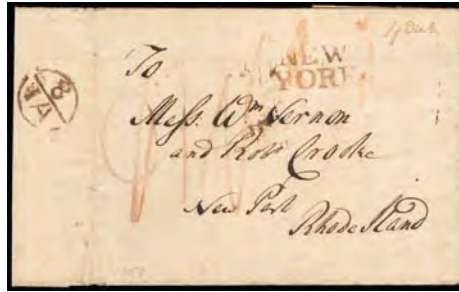 NEW
YORK
To
Mess. Wm. Vernon
and Robt Crooke
New Port
Rhode Island